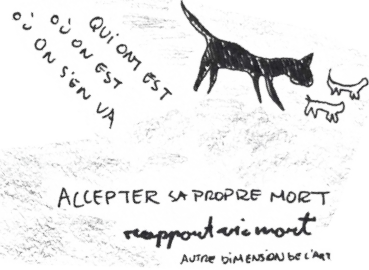 QUI ONT EST
OÙ ON EST
OÙ ON S'EN VA
ACCEPTER SA PROPRE MORT
rapport vie mort
AUTRE DIMENSION DE L'ART